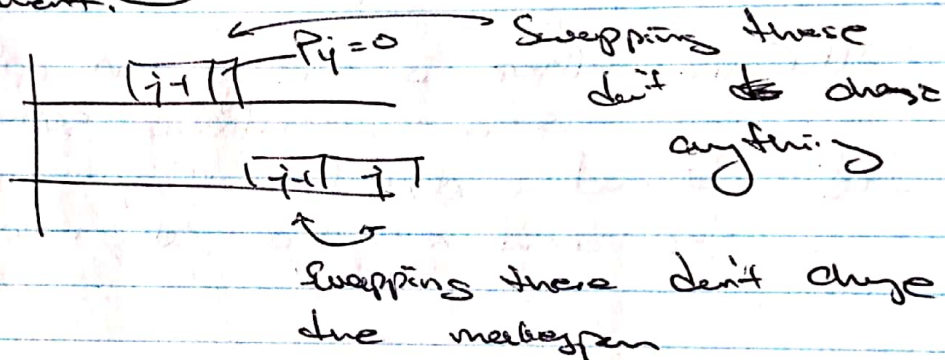 Pij=0
Swapping these
don't change
anything
j-1
j-1 j
Swapping these don't change
the makespan